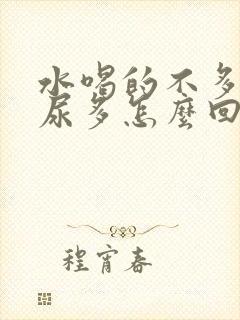 水喝的不多
尿多怎麼回
程宵春